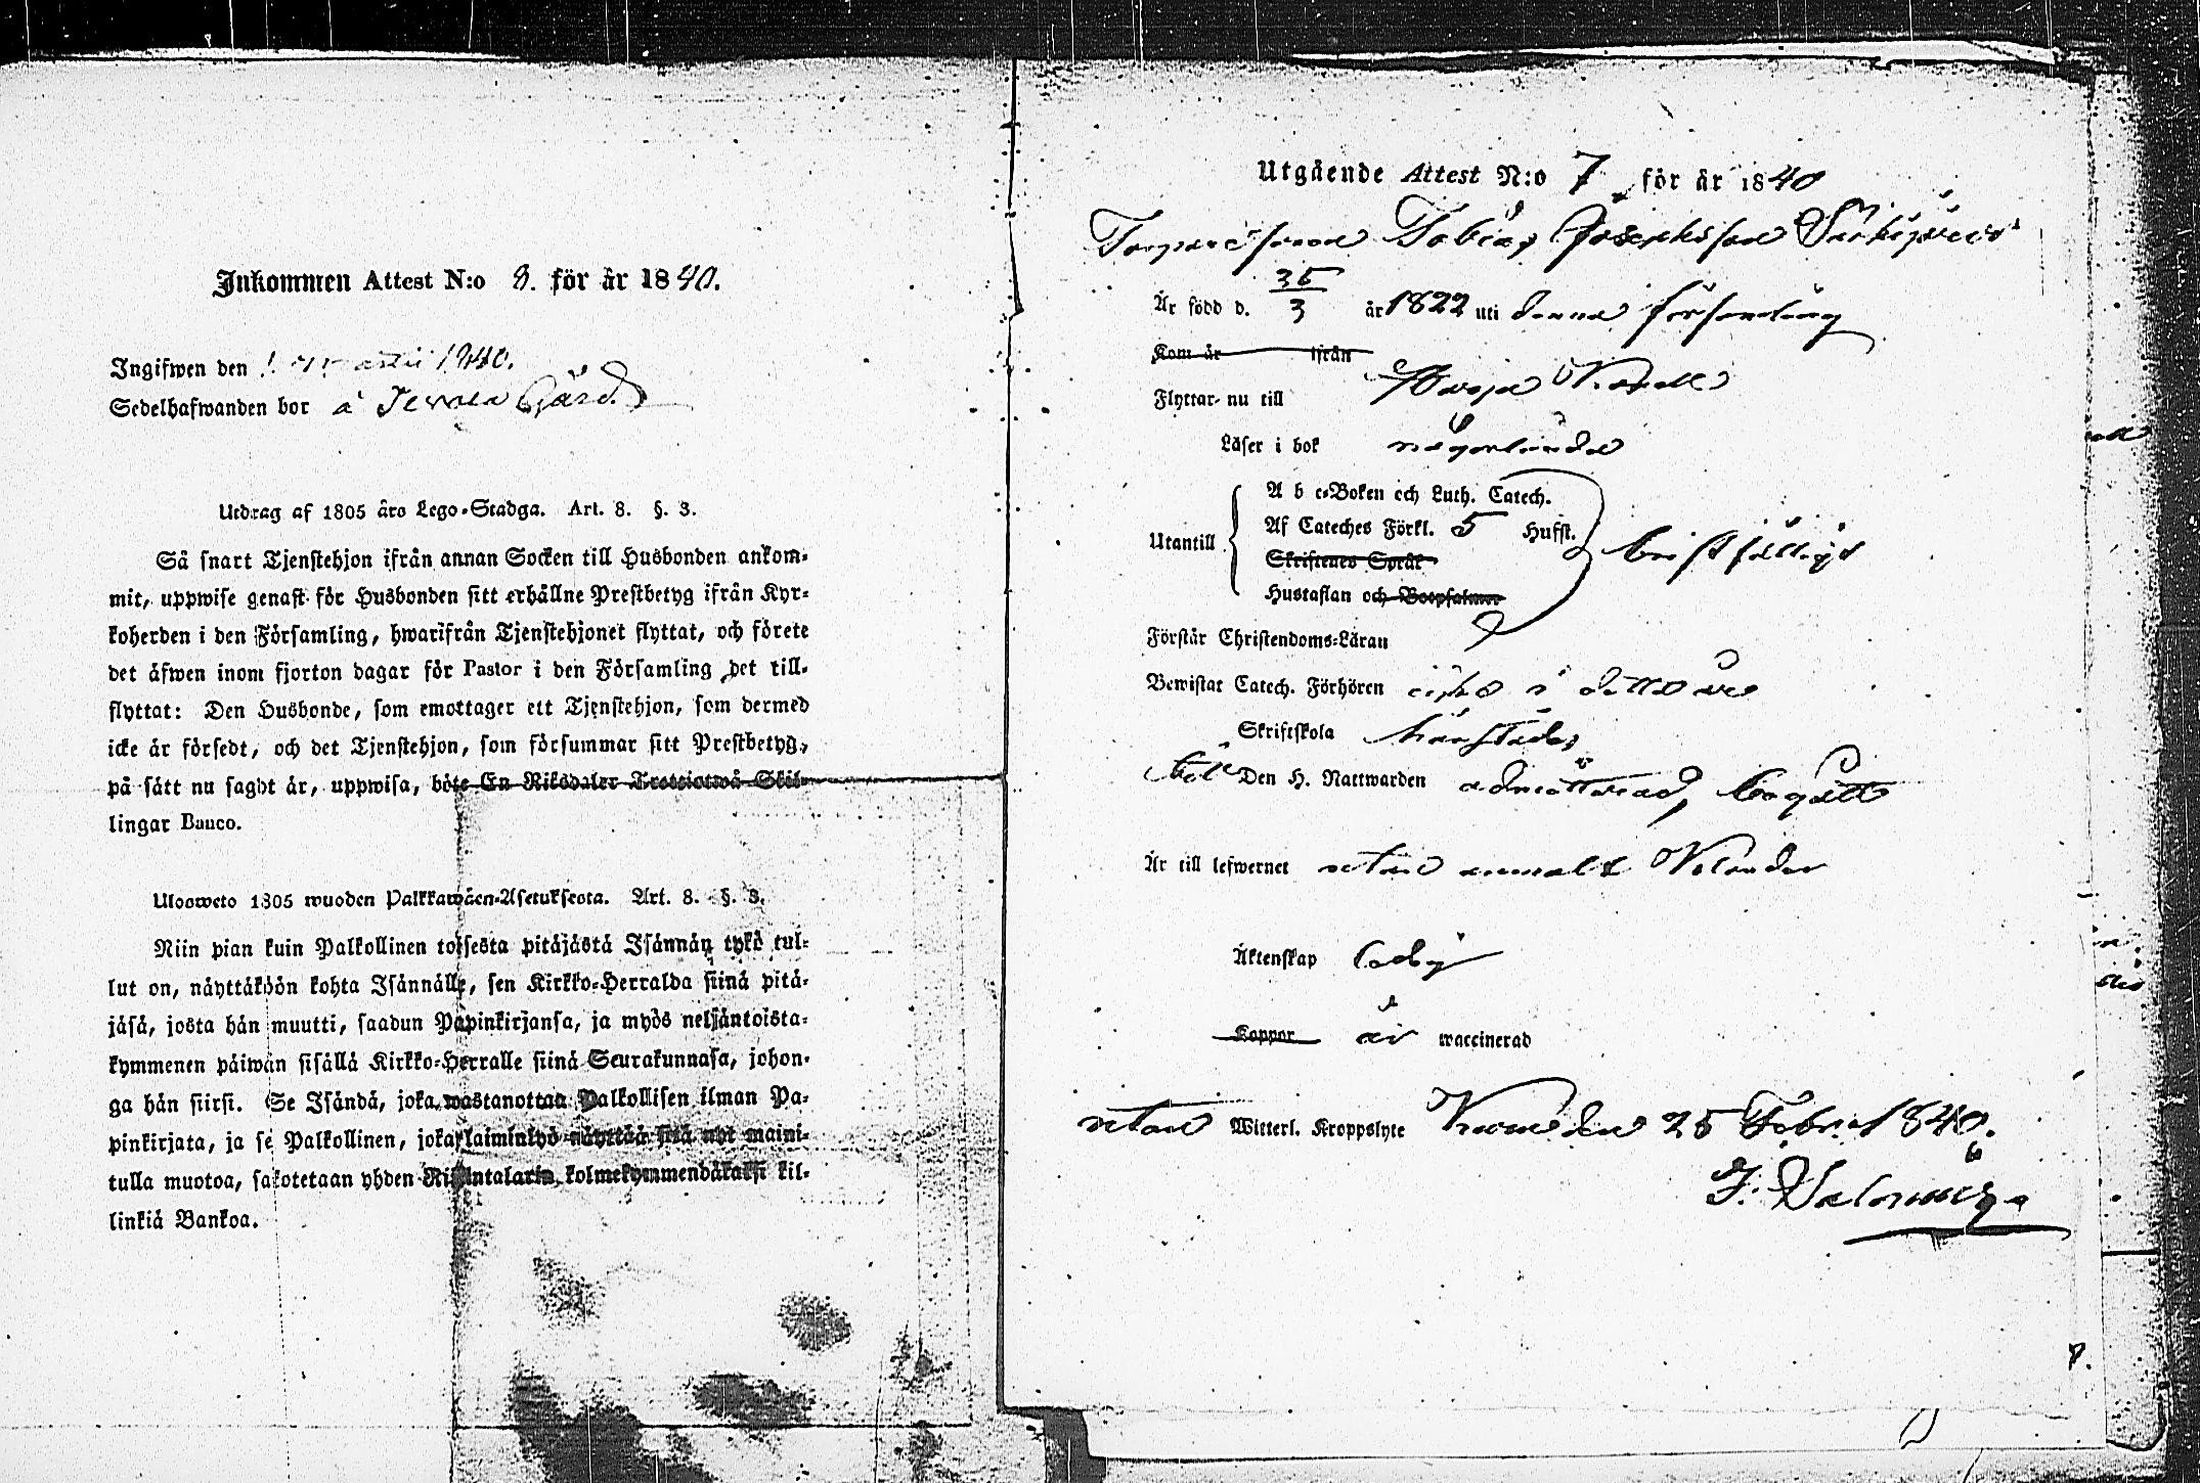 Inkommen Attest N:o 8. för år 1840.
Ingifwen den 1840.
Sedelhafwanden bor å Gård
Utdrag af 1805 års Lego-Stadga. Art. 8. §. 3.
Så snart Tjenstehjon ifrån annan Socken till Husbonden ankom-
mit, uppwise genast för Husbonden sitt erhållne Prestbetyg ifrån Kyr-
koherden i den Församling, hwarifrån Tjenstehjonet flyttat, och förete
det äfwen inom fjorton dagar för Pastor i den Församling det till-
flyttat: Den Husbonde, som emottager ett Tjenstehjon, som dermed
icke är försedt, och det Tjenstehjon, som försummar sitt Prestbetyg,
på sätt nu sagdt är, uppwisa, böte En Riksdaler Trettiotwå Skil-
lingar Banco.
Ulosweto 1805 wuoden Palkkawäen-Asetuksesta. Art. 8. §. 3.
Niin pian kuin Palkollinen toisesta pitäjästä Isännän tykö tul-
lut on, näyttäköön kohta Isännälle, sen Kirkko-Herralda siinä pitä-
jäsä, josta hän muutti, saadun Papinkirjansa, ja myös neljäntoista-
kymmenen päiwän sisällä Kirkko-Herralle siinä Seurakunnasa, johon-
ga hän siirsi. Se Isändä, joka wastanottaa Palkollisen ilman Pa-
pinkirjata, ja se Palkollinen, joka laiminlyö näyttää sitä nyt maini-
tulla muotoa, sakotetaan yhden Riksintalarin kolmekymmendäkaksi kil-
linkiä Bankoa.
Utgående Attest N:o 7 för år 1840
Tobias Josephsson
Är född d. 3 år 1822 uti denna församling
Kom år ifrån
Flyttar nu till
Läser i bok någorlunda
Utantill
A b c-Boken och Luth. Catech.
Af Cateches Förkl. 5 Hufst.
Skriftenes Språk
Hustaflan och Botpsalmer
bristfälligt
Förstår Christendoms-Läran
Bewistat Catech. Förhören i detta år
Skriftskola
Den H. Nattwarden admitterad, begått
Är till lefwernet utan
Äktenskap ledig
Koppor är waccinerad
utan Witterl. Kroppslyte den 25 Febr. 1840.